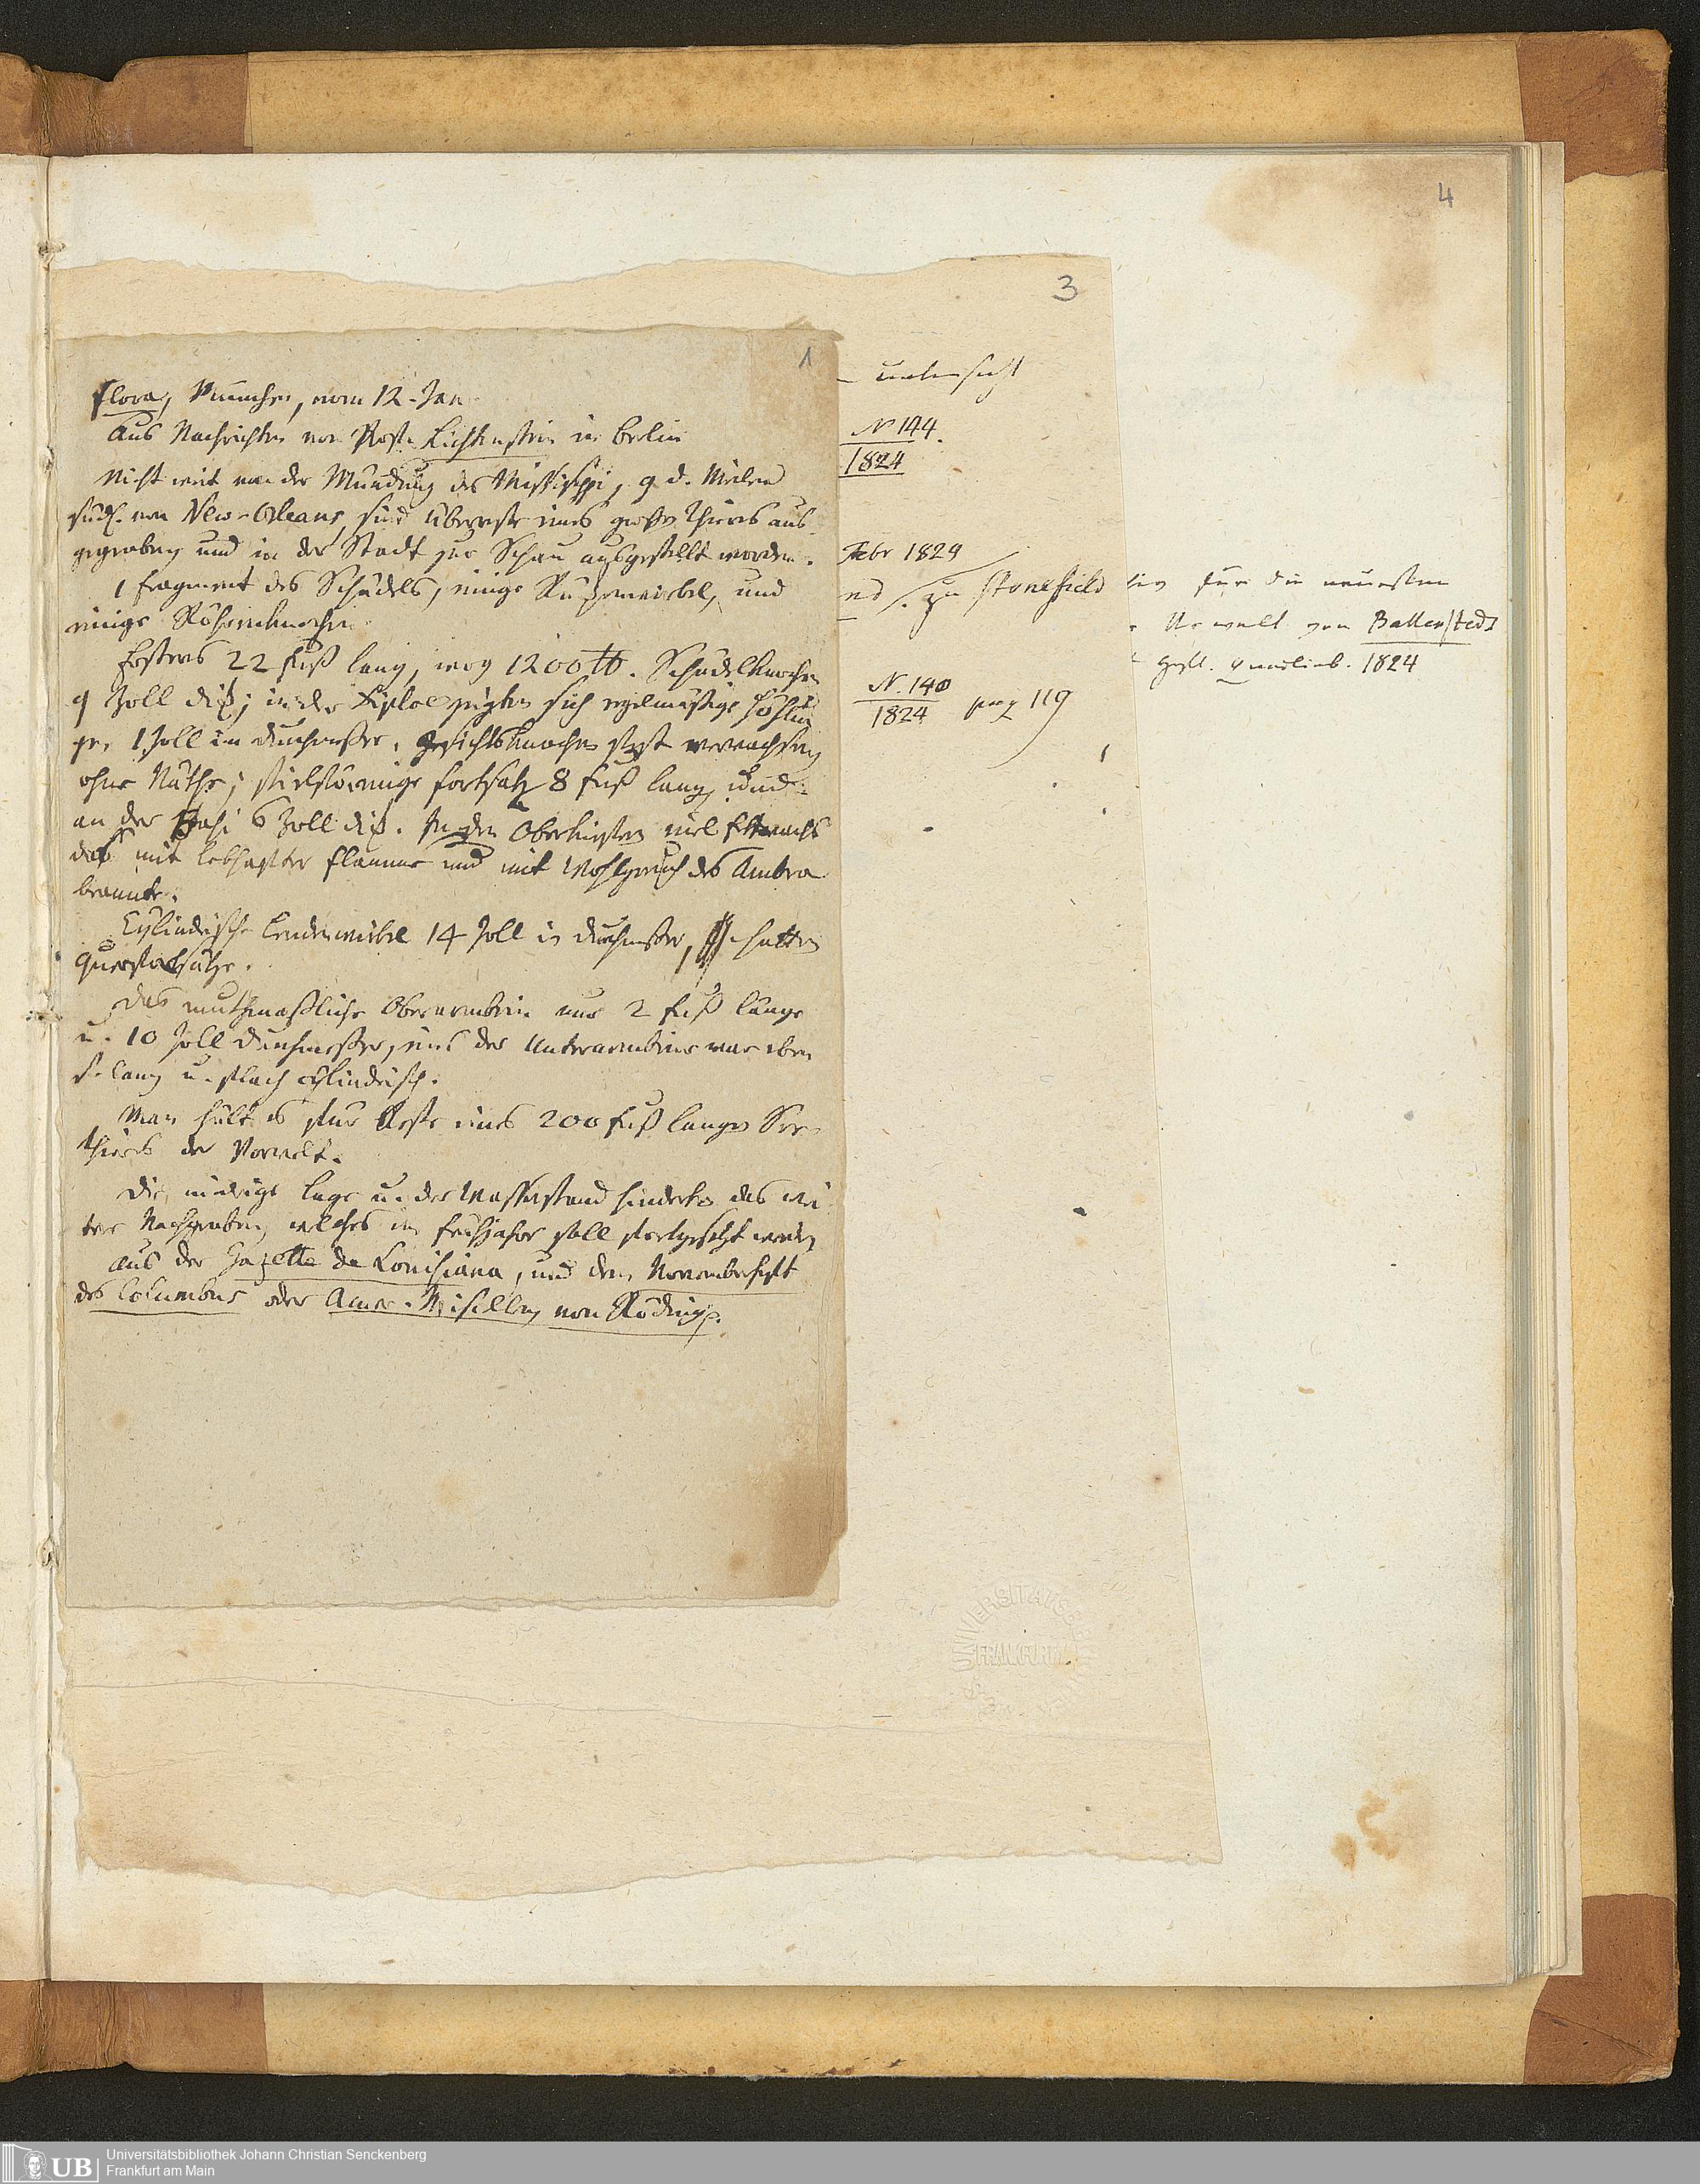 4
3
1
Flora, München, vom 12. Jan
Aus Nachrichten von Prof. Lichtenstein in Berlin
Nicht weit von der Mündung des Mississippi, 9 d. Meilen
südl. von New-Orleans, sind Überreste eines großen Thieres aus-
gegraben und in der Stadt zur Schau ausgestellt worden.
1 Fragment des Schädels, einige Rückenwirbel, und
einige Röhrenknochen
Ersteres 22 Fuß lang, wog 1200 ℔. Schädelknochen
9 Zoll dick; in der Diploe zeigten sich regelmäßige Höhlun
gen 1 Zoll im Durchmesser. Gesichtsknochen fest verwachsen
ohne Näthe; stielförmige Fortsatz 8 Fuß lang und
an der Basis 6 Zoll dick. In den Oberkiefern viel Fettwachs
das mit lebhafter Flamme und mit Wohlgeruch des Ambra
brannte.
Cylindrische Lendenwirbel 14 Zoll in Durchmesser, hatten
Querfortsätze.
Das muthmaßliche Oberarmbein nur 2 Fuß lang
u. 10 Zoll Durchmesser, eins der Unterarmbeine war eben
so lang u. flach cylindrisch.
Man hält es für Reste eines 200 Fuß langen See-
thieres der Vorwelt.
Die niedrige Lage u. der Wasserstand hinderten das wei
tere Nachgraben, welches im Frühjahr soll fortgesetzt werden
Aus der Gazette de Louisiana, und dem Novemberheft
des Columbus oder Amer. Misellen von Röding.
untersucht
N 144.
1824
Febr 1829
nd zu Stonesfield
N. 140
1824 pag 119
für die neuesten
Urwelt von Ballenstedt
Heft. Quedlinb. 1824
UNIVERSITÄTSB
FRANKFURT
UB
Universitätsbibliothek Johann Christian Senckenberg
Frankfurt am Main